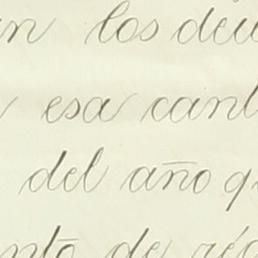 an los deu
esa cant
del año q
nto de ré